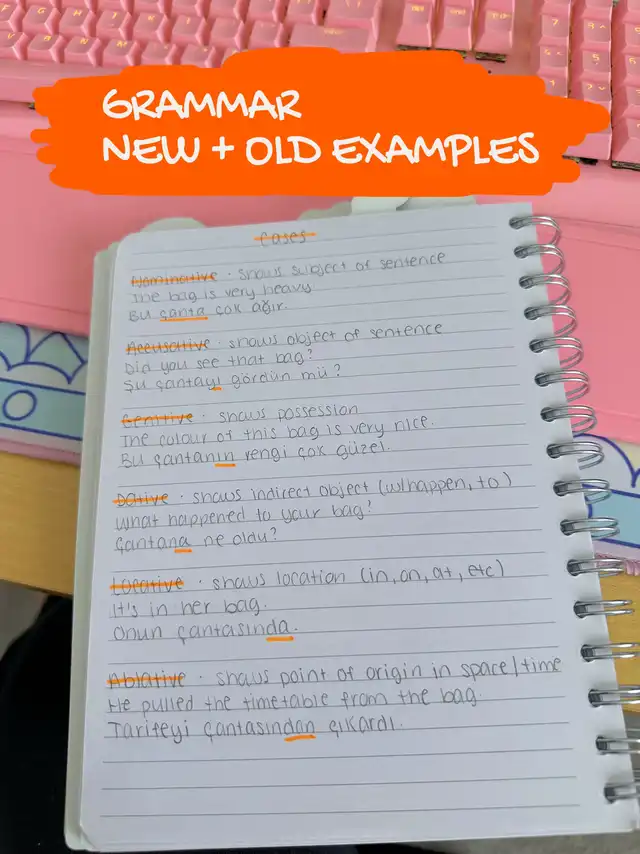 GRAMMAR
NEW + OLD EXAMPLES
Cases
Nominative · shows subject of sentence
The bag is very heavy
Bu çanta çok ağır.
Accusative · shows object of sentence
Did you see that bag?
Şu çantayı gördün mü?
Genitive · shows possession
The colour of this bag is very nice.
Bu çantanın rengi çok güzel.
Dative · shows indirect object (w/happen, to)
What happened to your bag?
Çantana ne oldu?
Locative · shows location (in, on, at, etc)
It's in her bag.
Onun çantasında.
Ablative · shows point of origin in space/time
He pulled the timetable from the bag.
Tarifeyi çantasından çıkardı.